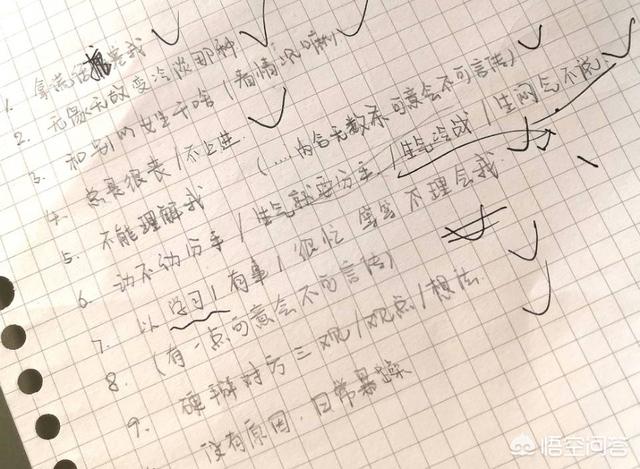 1. 拿荒话搪塞我
2. 无缘无故变冷淡那种
3. 和别的女生干啥（看情况嘛）
4. 总是很丧/不上进.
5. 不能理解我（....内含无数条可意会不可言传）
6. 动不动分手/生气就要分手/生气冷战/生闷气不说
7. 以学习/有事/很忙 等等不理会我
8. （有一点可意会不可言传）
9. 硬掰对方三观/观点/想法.
没有原因.日常暴躁
悟空问答